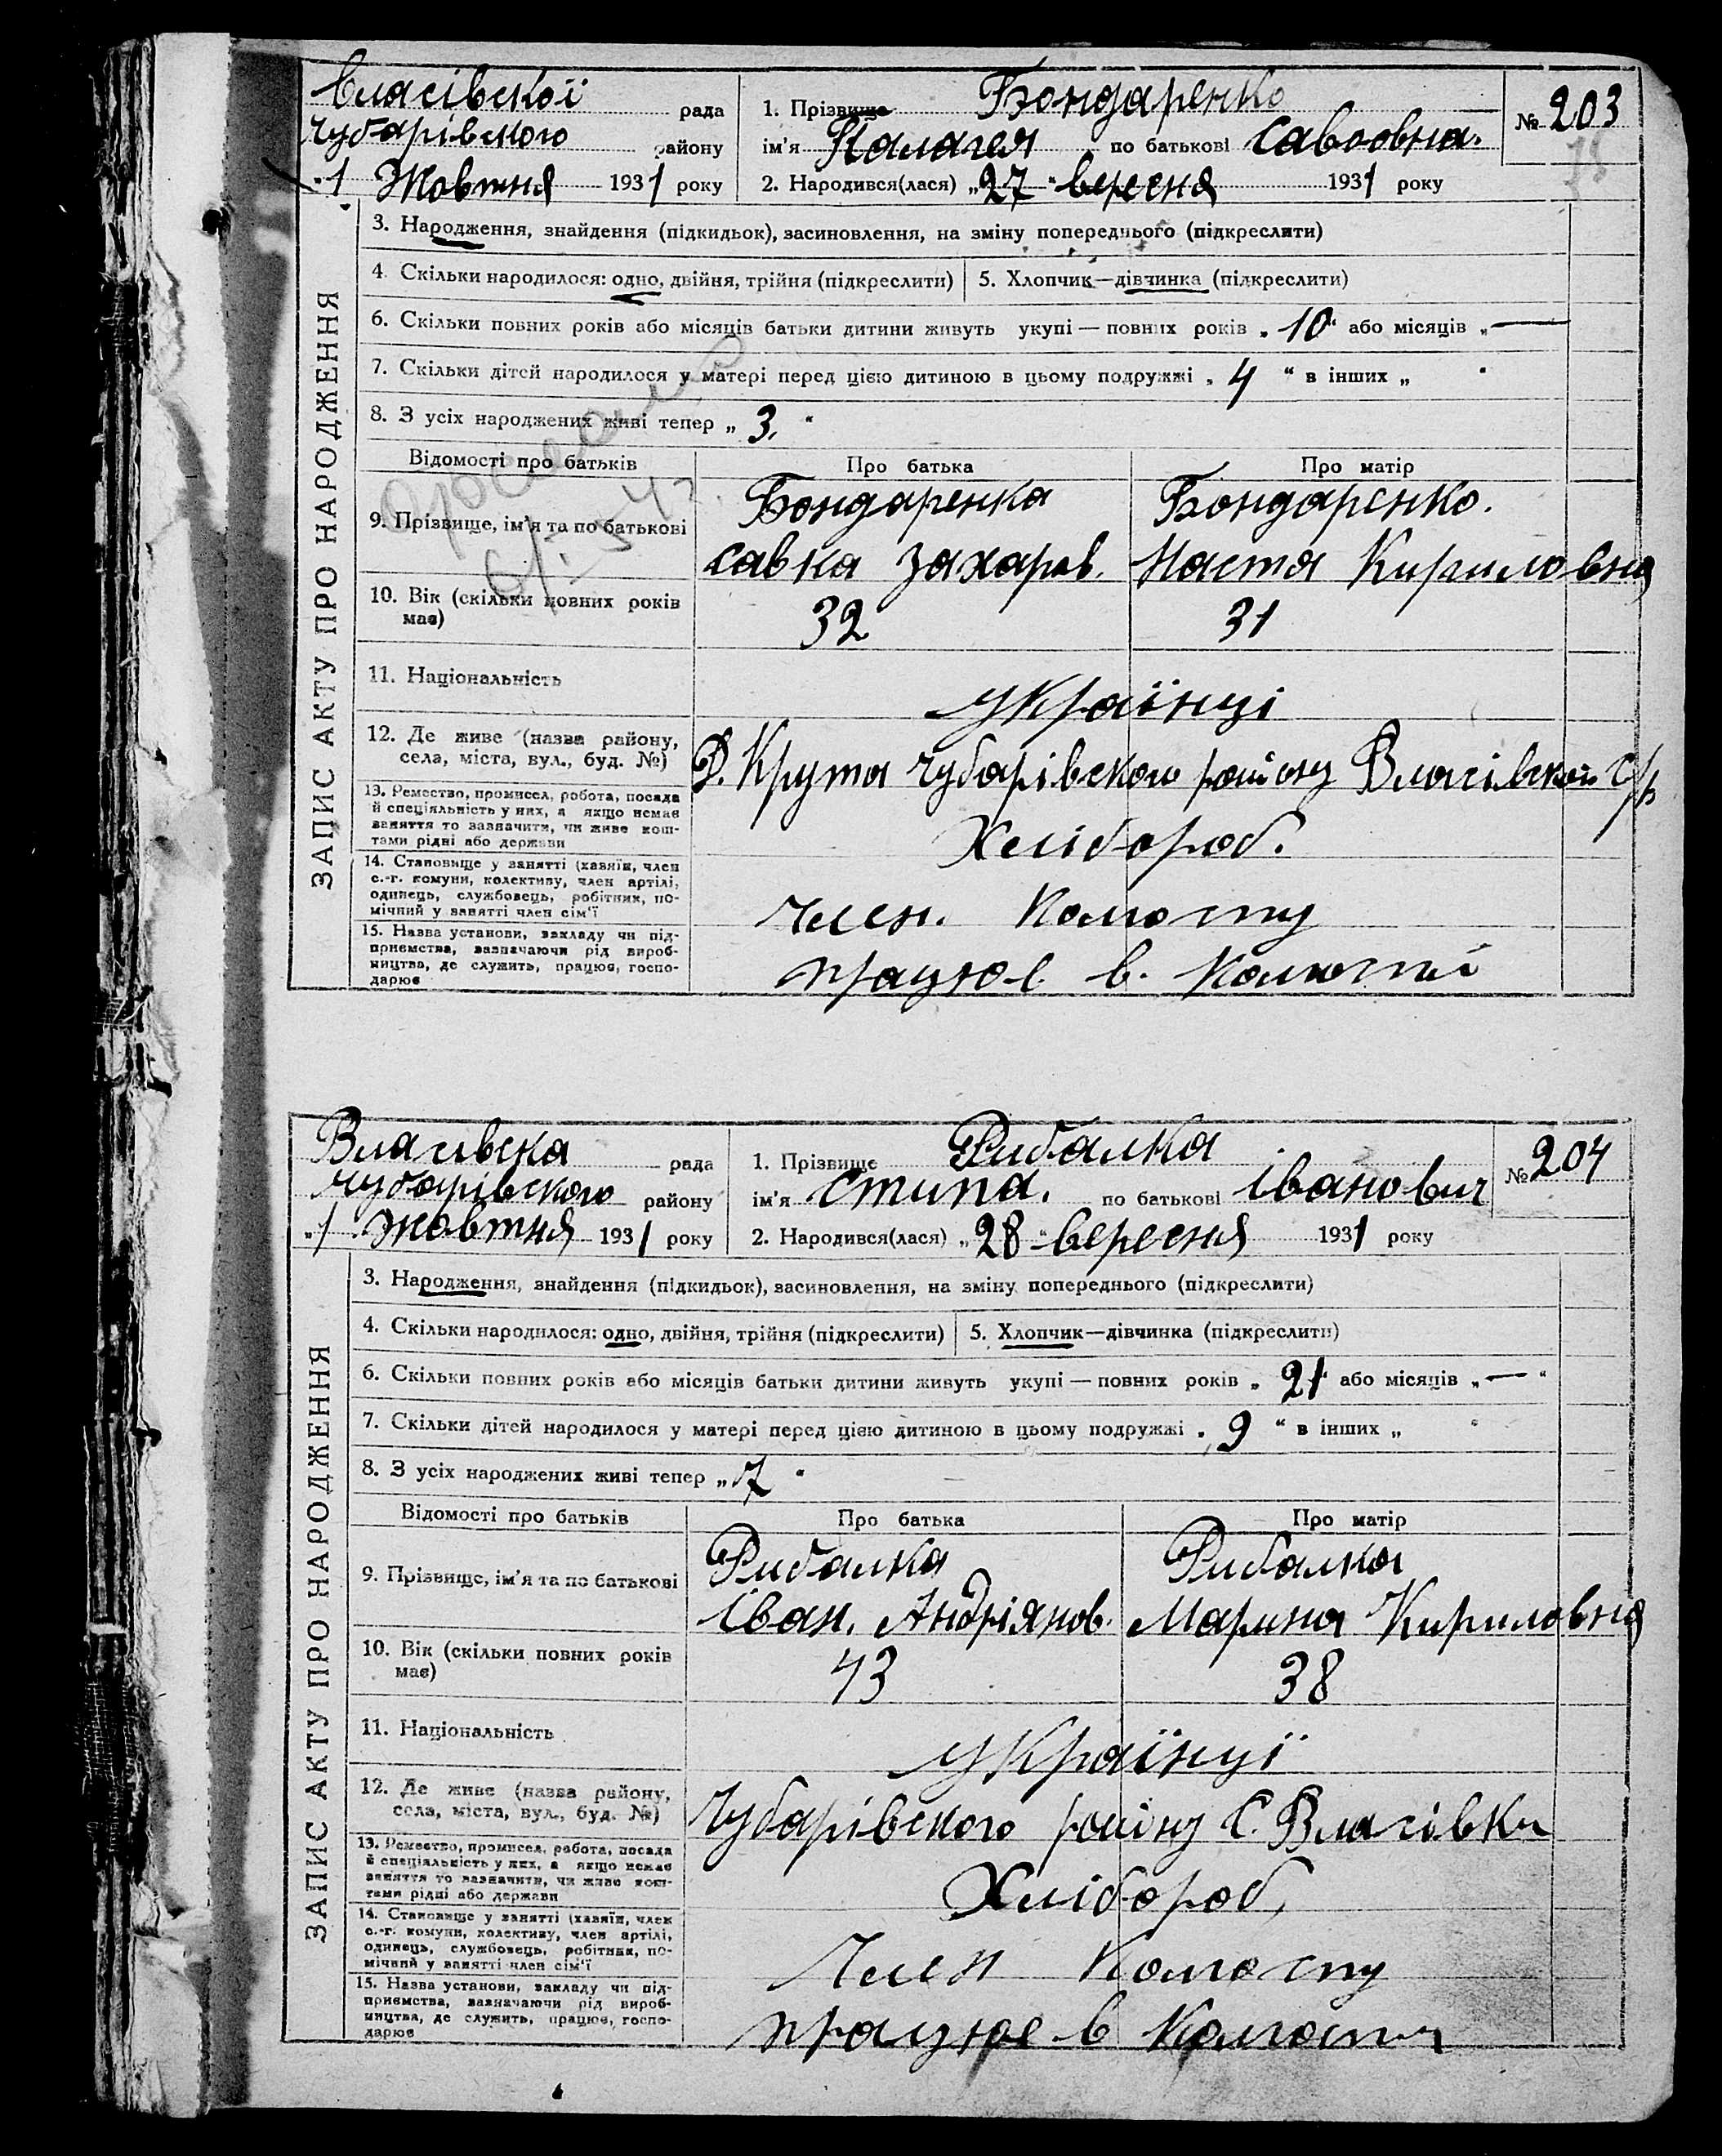 Власівської рада
Чубарівского району
„1 Жовтня 1931 року
1. Прізвище Бондаренко
ім'я Палагея по батькові Саввовна.
2. Народився(лася) „27" вересня 1931 року
№ 203
ЗАПИС АКТУ ПРО НАРОДЖЕННЯ
3. Народження, знайдення (підкидьок), засиновлення, на зміну попереднього (підкреслити)
4. Скільки народилося: одно, двійня, трійня (підкреслити)
5. Хлопчик—дівчинка (підкреслити)
6. Скільки повних років або місяців батьки дитини живуть укупі — повних років „10" або місяців „—
7. Скільки дітей народилося у матері перед цією дитиною в цьому подружжі „4" в інших „ "
8. З усіх народжених живі тепер „3."
Відомості про батьків
Про батька
Про матір
9. Прізвище, ім'я та по батькові
Бондаренка
Савка Захаров.
Бондаренко.
Настя Кириловна
10. Вік (скільки повних років
має)
32
31
11. Національність
Українці
12. Де живе (назва району,
села, міста, вул., буд. №)
Д. Крута Чубарівского району Власівской С/р
13. Ремество, промисел, робота, посада
й спеціяльність у них, а якщо немає
заняття то зазначити, чи живе кош-
тами рідні або держави
Хлібороб.
14. Становище у занятті (хазяїн, член
с.-г. комуни, колективу, член артілі,
одинець, службовець, робітник, по-
мічний у занятті член сім'ї
Член. Колгоспу
15. Назва установи, закладу чи під-
приємства, зазначаючи рід вироб-
ництва, де служить, працює, госпо-
дарює
працює в. Колгоспі
Власівска рада
Чубарівского району
„1 Жовтня 1931 року
1. Прізвище Рибалка
ім'я Стипа. по батькові Іванович
2. Народився(лася) „28" вересня 1931 року
№ 204
ЗАПИС АКТУ ПРО НАРОДЖЕННЯ
3. Народження, знайдення (підкидьок), засиновлення, на зміну попереднього (підкреслити)
4. Скільки народилося: одно, двійня, трійня (підкреслити)
5. Хлопчик—дівчинка (підкреслити)
6. Скільки повних років або місяців батьки дитини живуть укупі — повних років „21" або місяців „—"
7. Скільки дітей народилося у матері перед цією дитиною в цьому подружжі „9" в інших „ "
8. З усіх народжених живі тепер „7"
Відомості про батьків
Про батька
Про матір
9. Прізвище, ім'я та по батькові
Рибалка
Іван. Андріянов.
Рибалка
Марина Кириловна
10. Вік (скільки повних років
має)
43
38
11. Національність
Українці
12. Де живе (назва району,
села, міста, вул., буд. №)
Чубарівского району С. Власівки
13. Ремество, промисел, робота, посада
й спеціяльність у них, а якщо немає
заняття то зазначити, чи живе кош-
тами рідні або держави
Хлібороб,
14. Становище у занятті (хазяїн, член
с.-г. комуни, колективу, член артілі,
одинець, службовець, робітник, по-
мічний у занятті член сім'ї
Член Колгоспу
15. Назва установи, закладу чи під-
приємства, зазначаючи рід вироб-
ництва, де служить, працює, госпо-
дарює
працює в Колгоспи